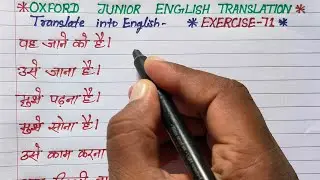 *OXFORD JUNIOR ENGLISH TRANSLATION*
Translate into English- *EXERCISE-71*
वह जाने को है।
उसे जाना है।
मुझे पढ़ना है।
मुझे सोना है।
उसे काम करना